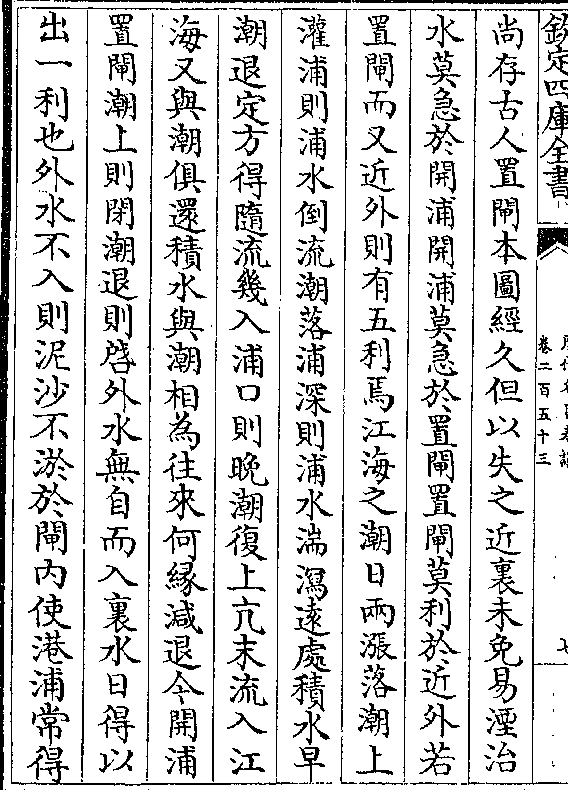 欽定四庫全書
卷二百五十三
尚存古人置閘本圖經久但以失之近裏未免易湮治
水莫急於開浦開浦莫急於置閘置閘莫利於近外若
置閘而又近外則有五利焉江海之潮日兩漲落潮上
灌浦則浦水倒流潮落浦深則浦水湍瀉遠處積水早
潮退定方得隨流幾入浦口則晚潮復上亢末流入江
海又與潮俱還積水與潮相為往來何緣減退今開浦
置閘潮上則閉潮退則啓外水無自而入裏水日得以
出一利也外水不入則泥沙不淤於閘内使港浦常得